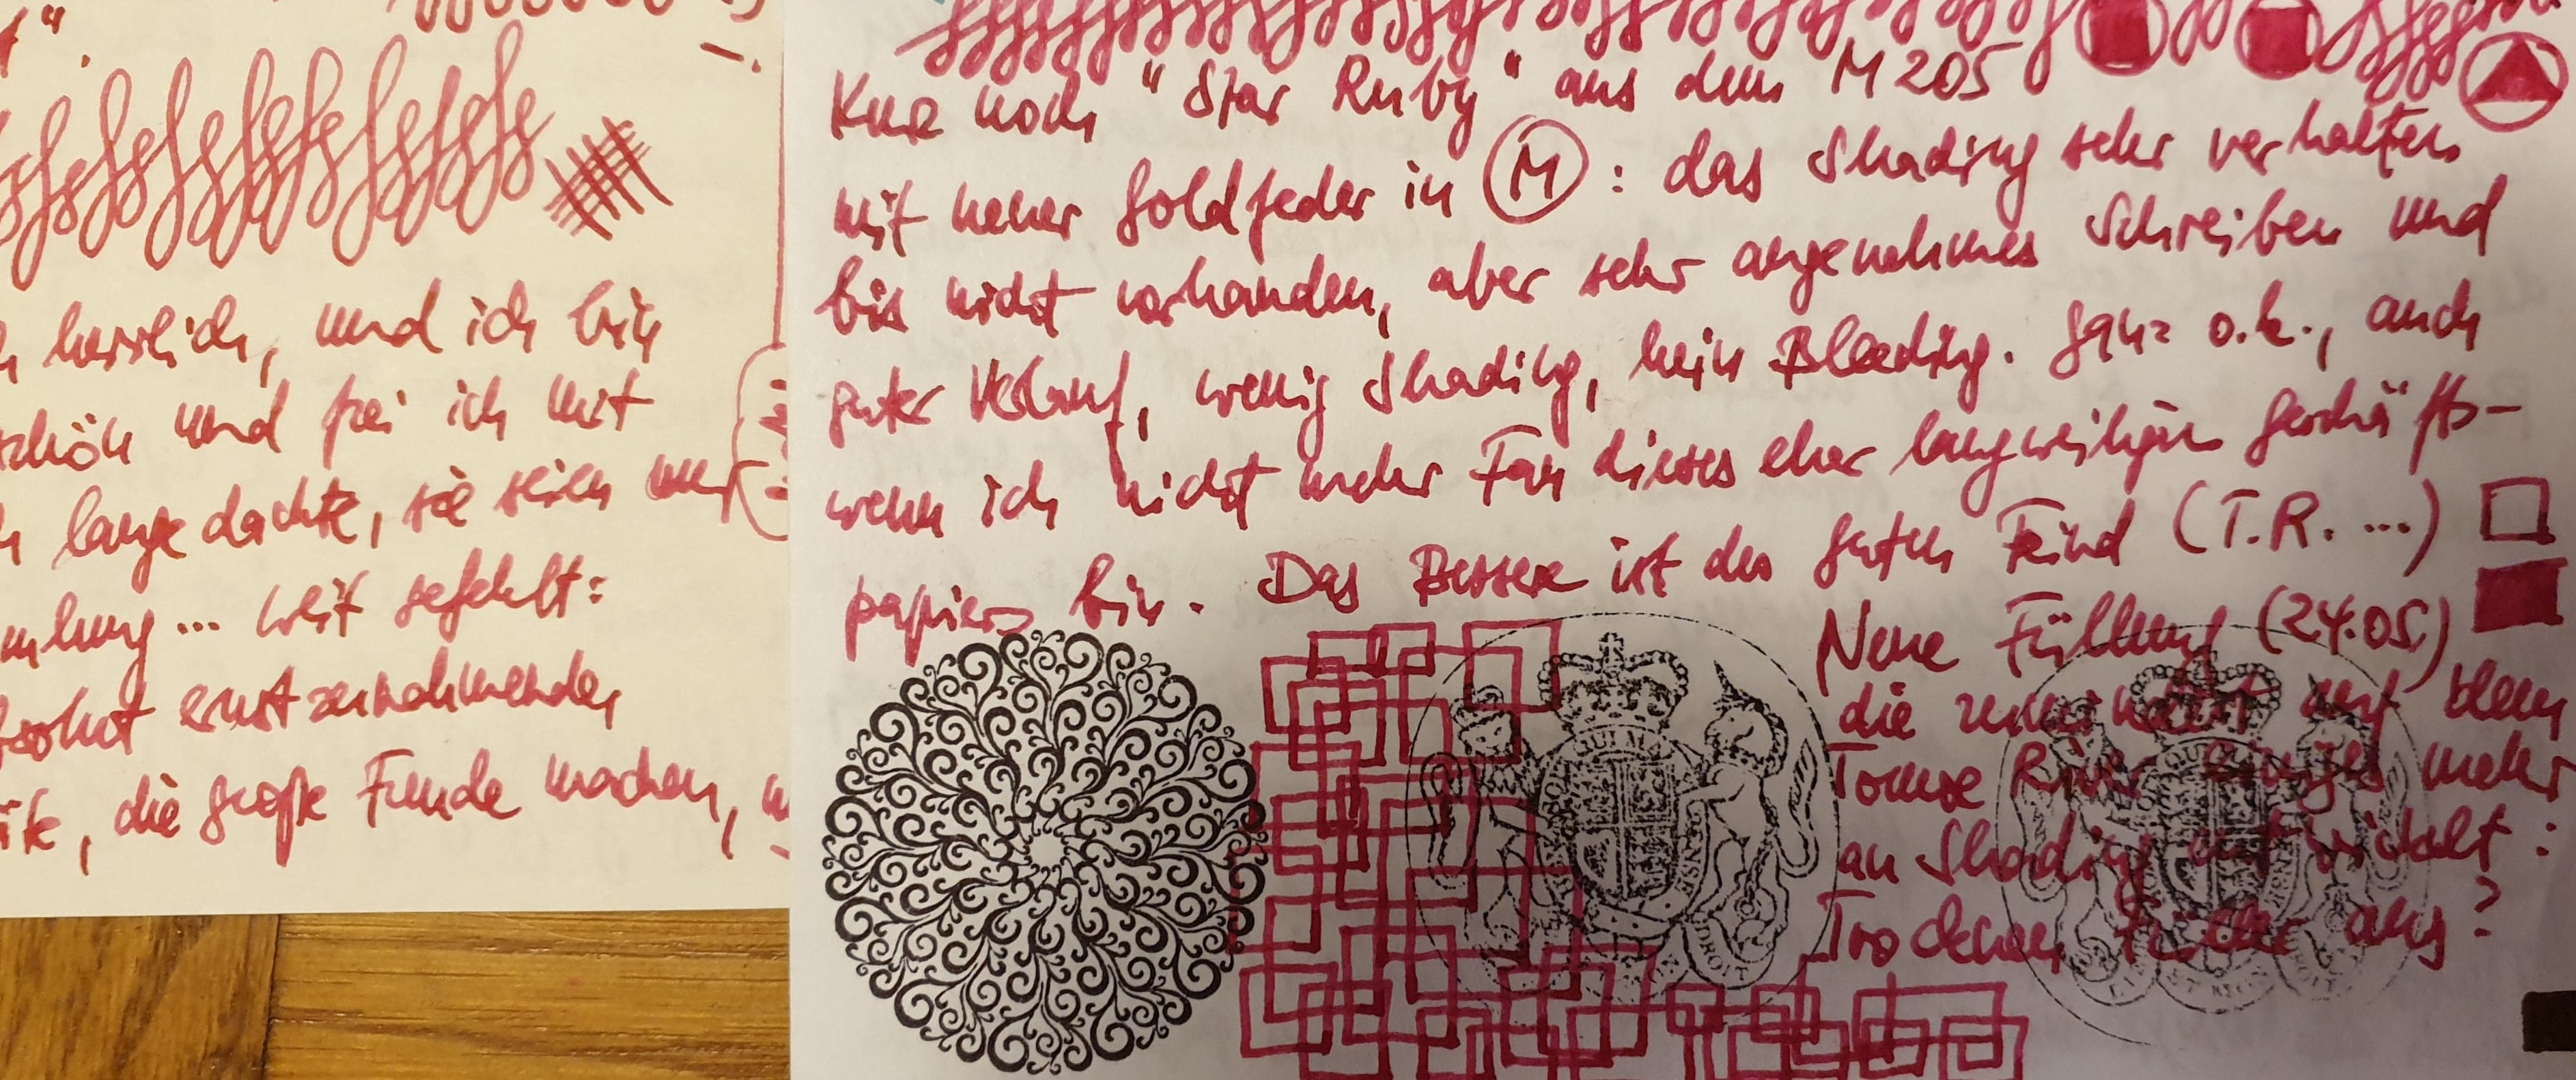 t".
herrlich, und ich bin
schön und frei ich mit
lange dachte, sie seien nur
mlung ... weit gefehlt:
absolut ernstzunehmender
, die große Funde machen,
Kurz noch "Star Ruby" aus dem M205
mit neuer Goldfeder in M : das Shading sehr verhalten
bis nicht vorhanden, aber sehr angenehmes Schreiben und
guter Verlauf, wenig Shading, kein Bleeding. Ganz o.k., auch
wenn ich nicht mehr Fan dieses eher langweiligen Geschäfts-
papiers bin. Das Bessere ist des Guten Feind (T.R. ...)
Neue Füllung (24.05.)
die zumindest auf dem
Tomoe River einiges mehr
an Shading entwickelt :
Trockener Füller aus?